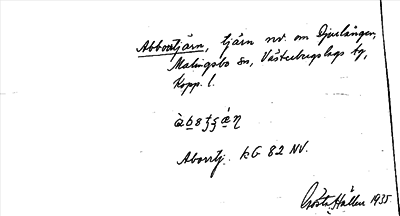 Abborrtjärn, tjärn nv. om Djurlången,
Malingsbo sn, Västerbergslags tg,
Kopp. l.
Aborrtj. KG 82 NV.
Gösta Hállen 1935